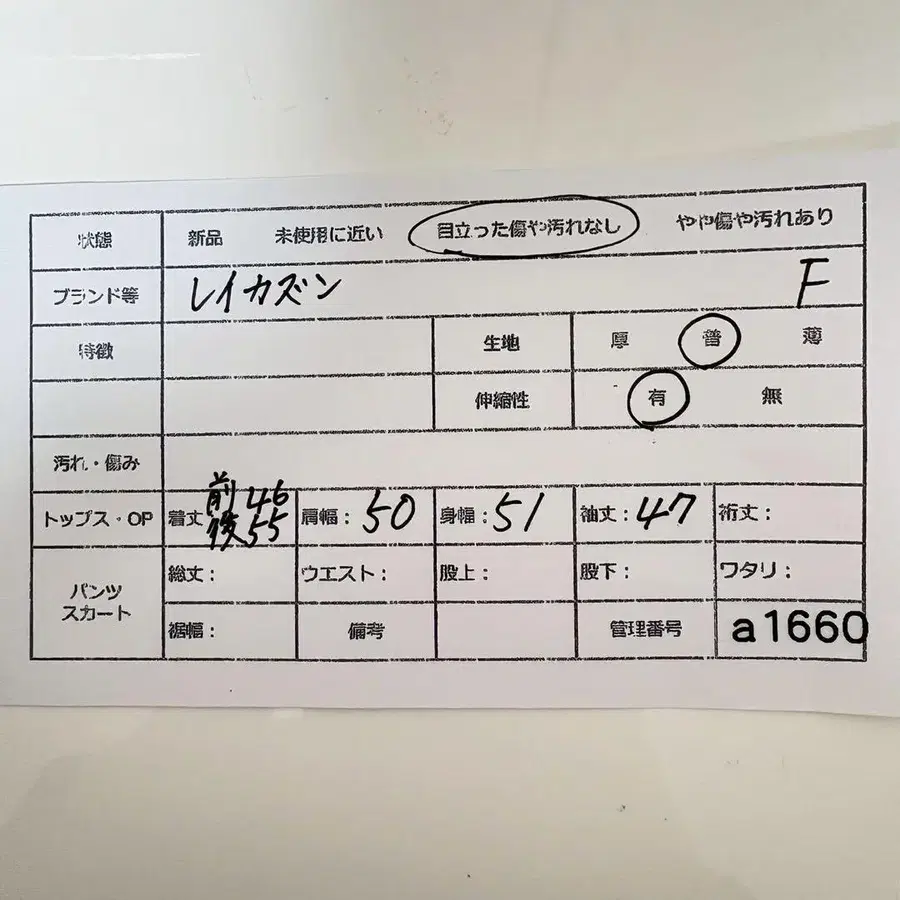 状態 新品 未使用に近い 目立った傷や汚れなし やや傷や汚れあり
ブランド等 レイカズン F
特徴 生地 厚 普 薄
伸縮性 有 無
汚れ・傷み
トップス・OP 着丈 前46 後55 肩幅: 50 身幅: 51 袖丈: 47 裄丈:
パンツ スカート 総丈: ウエスト: 股上: 股下: ワタリ:
裾幅: 備考 管理番号 a1660